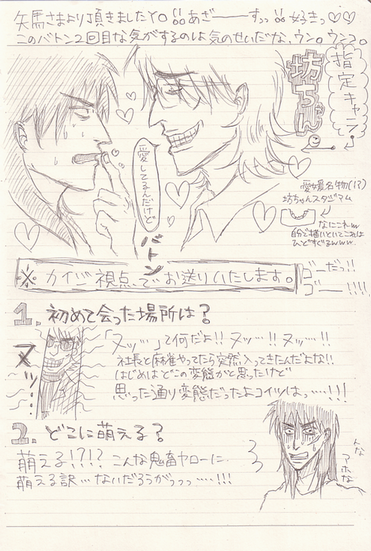 矢馬さまより頂きましたYO!!あざーーーすっ!!好きっ♡♡
このバトン2回目な気がするのは気のせいだな、ウン。ウンコ。
指定キャラ↓
坊ちゃん。
愛してるんだけど
愛媛名物(!?)
坊ちゃんスタジアム
なにこれw
バトン
※カイジ視点でお送りいたします。
ゴーだっ!!
ゴー!!!!
1. 初めて会った場所は?
ヌッ…
「ヌッ…」って何だよ!!ヌッ…!!ヌッ…!!
社長と麻雀やってたら突然入ってきたんだよな!!
はじめはどこの変態かと思ったけど
思った通り変態だったよコイツはっ……!!!
2. どこに萌える?
萌える!?!? こんな鬼畜ヤローに…
萌える訳…ないだろうがっっっ……!!!
んな
アホな